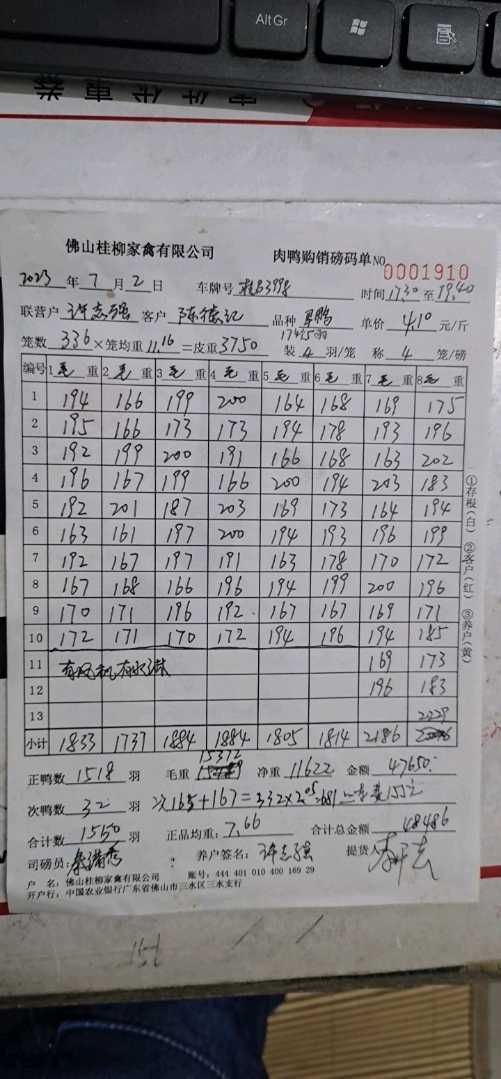 Alt Gr
佛山桂柳家禽有限公司 肉鸭购销磅码单 NO 0001910
2023 年 7 月 2 日 车牌号 时间 17:30 至 19:40
联营户 许志强 客户 陈德记 品种 单价 4.10 元/斤
笼数 336 ×笼均重 11.16 =皮重 3750 装 4 羽/笼 称 4 笼/磅
编号 1 毛 重 2 毛 重 3 毛 重 4 毛 重 5 毛 重 6 毛 重 7 毛 重 8 毛 重
1 194 166 199 200 164 168 169 175
2 195 166 173 173 194 178 193 196
3 192 199 200 191 166 168 163 202
4 196 167 199 166 200 194 203 183
5 192 201 187 203 169 173 164 194
6 163 161 197 200 194 193 196 199
7 192 167 197 191 163 178 170 172
8 167 168 166 196 194 199 200 196
9 170 171 196 192 167 167 169 171
10 172 171 170 172 194 196 194 185
11 169 173
12 196 183
13 2229
小计 1833 1737 1884 1884 1805 1814 2186
①存根(白) ②客户(红) ③养户(黄)
15372
正鸭数 1518 羽 毛重 净重 11622 金额 47650
次鸭数 32 羽 次165+167=332×
合计数 1550 羽 正品均重: 7.66 合计总金额 48486
司磅员: 养户签名: 许志强 提货人
户 名: 佛山桂柳家禽有限公司 账号: 444 401 010 400 169 29
开户行: 中国农业银行广东省佛山市三水区三水支行